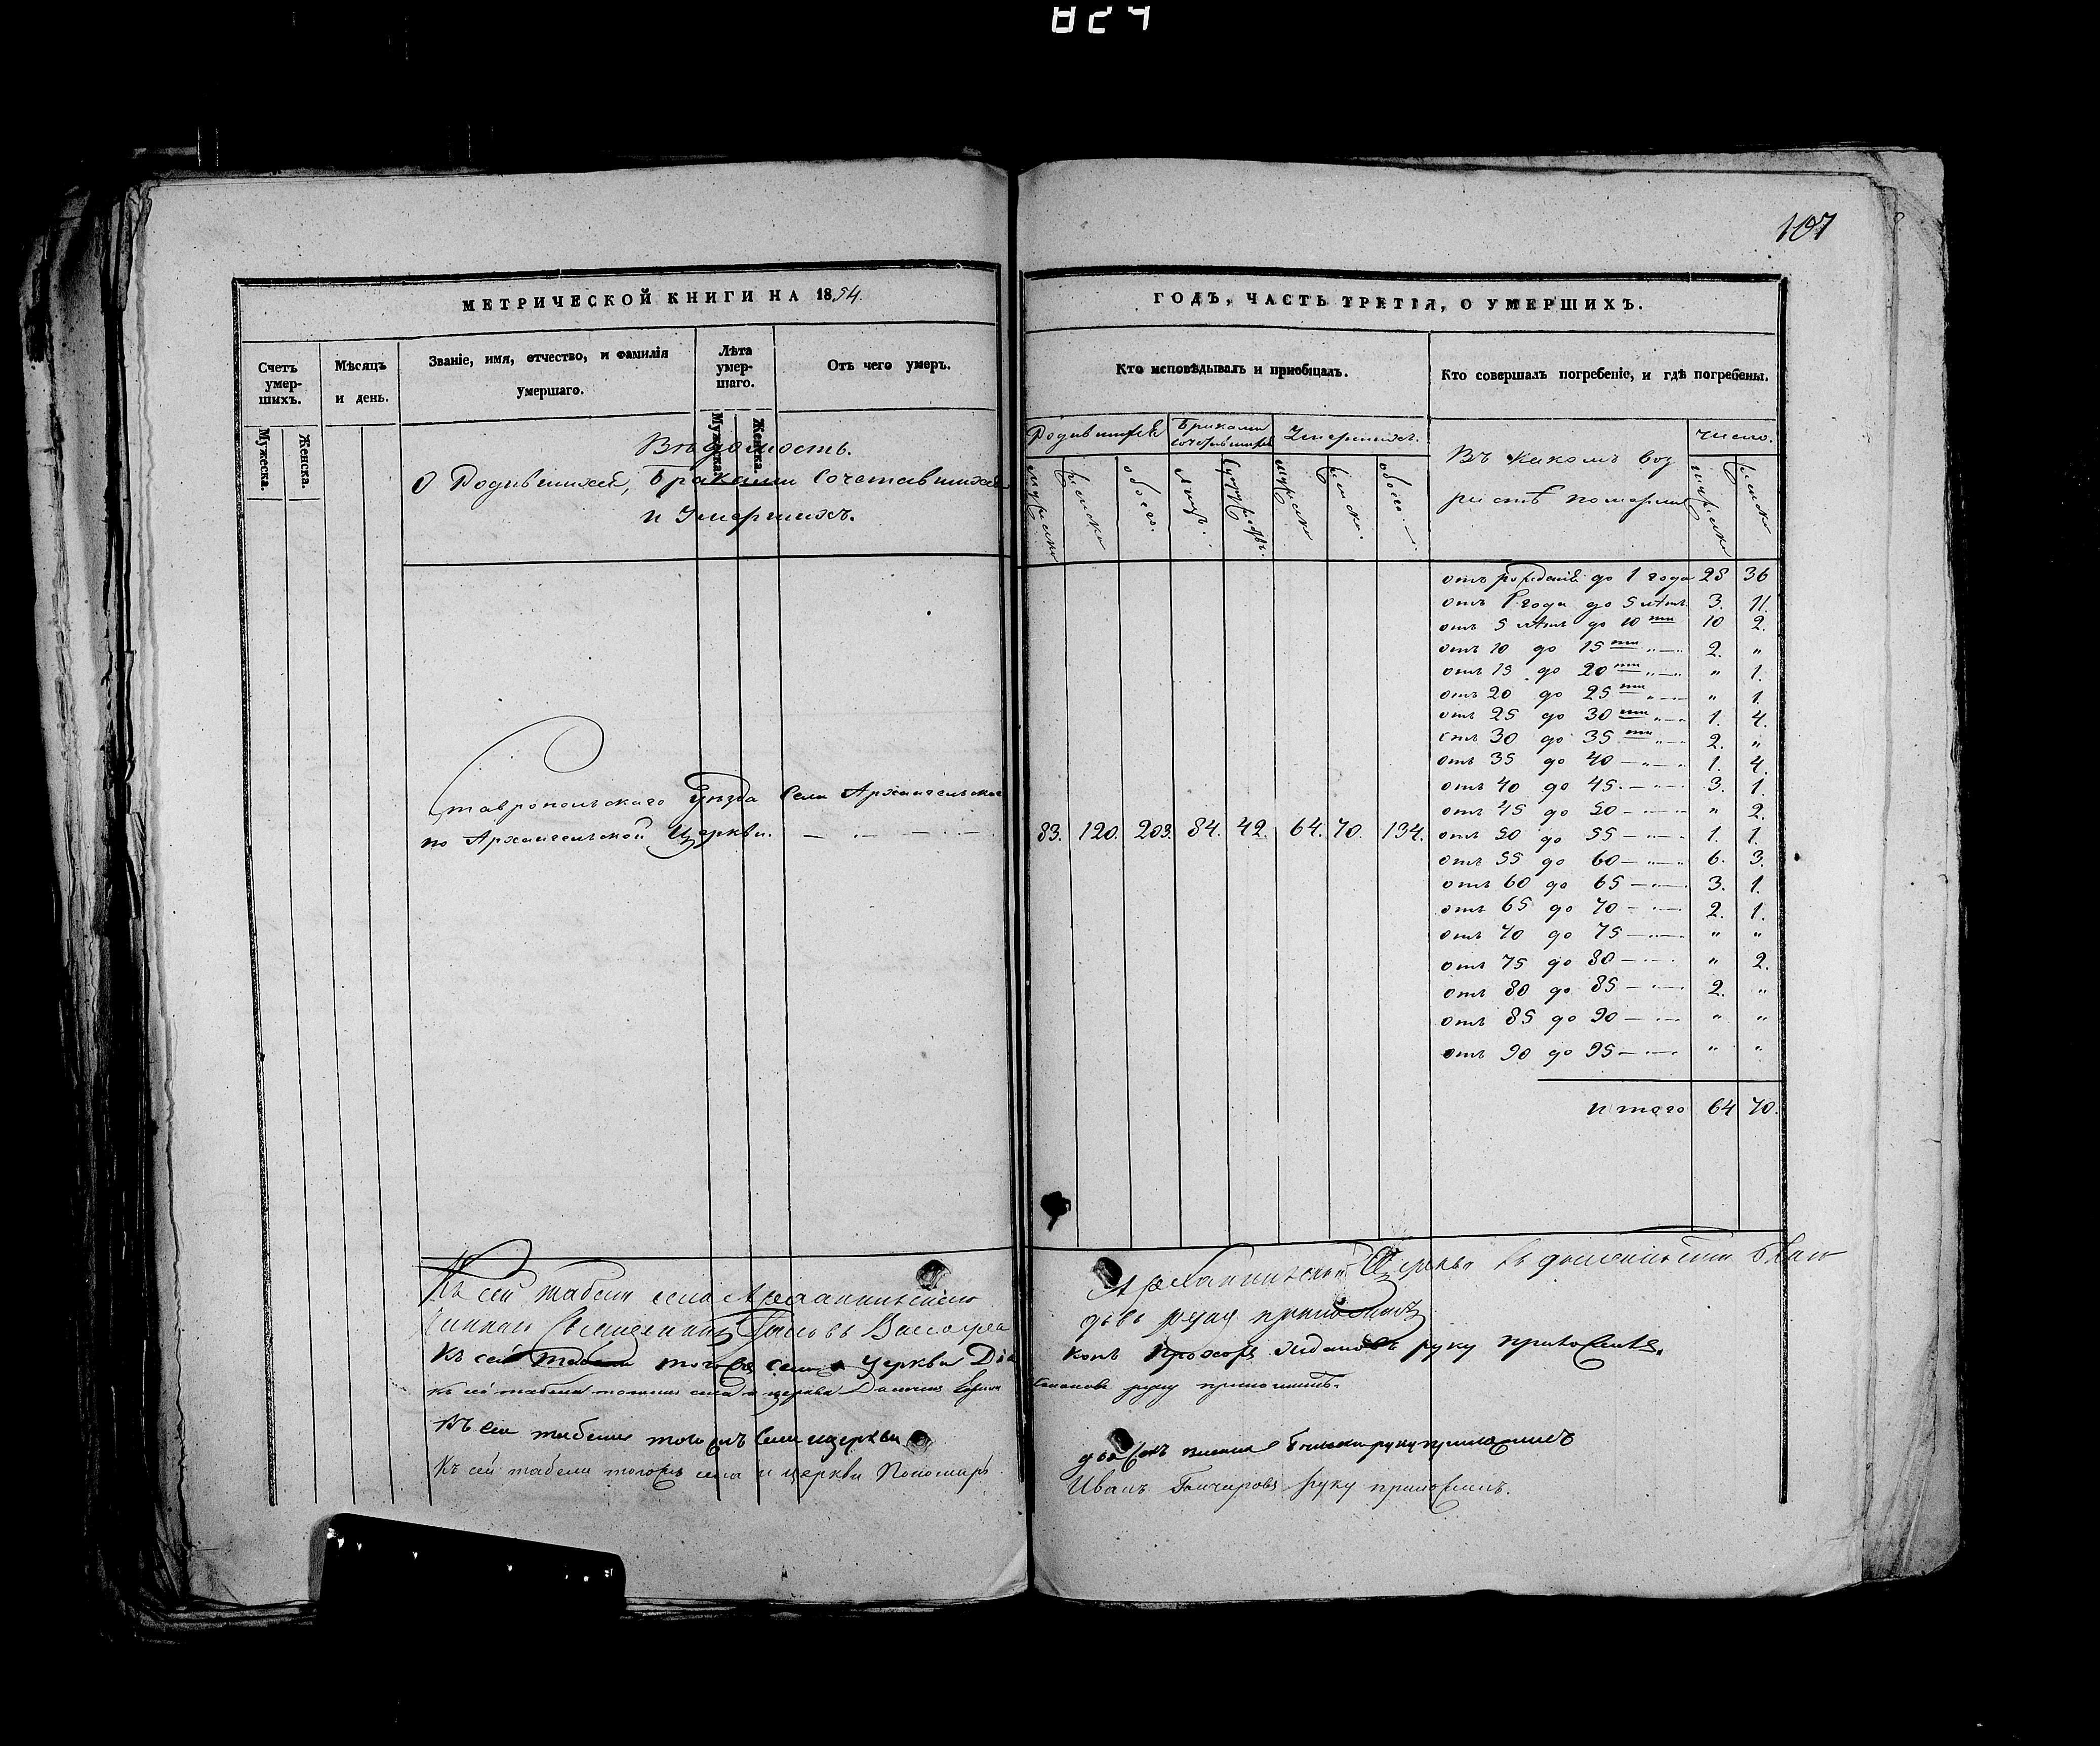 824
107
МЕТРИЧЕСКОЙ КНИГИ НА 1854.
ГОДЪ, ЧАСТЬ ТРЕТІЯ, О УМЕРШИХЪ.
Счетъ умер-шихъ.
Мѣсяцъ и день.
Званіе, имя, отчество, и фамилія умершаго.
Лѣта умер-шаго.
Отъ чего умеръ.
Кто исповѣдывалъ и пріобщалъ.
Кто совершалъ погребеніе, и гдѣ погребены.
Мужеска. Женска.
Мужеска. Женска.
Вѣдомость.
О Родившихся, Браками Сочетавшихся
и Умершихъ.
Родившихся
Браками сочетавшихся
Умершихъ.
Въ какомъ воз
растѣ померли
число.
мужеска женска обоего. лицъ. супружествъ. мужеска женска. обоего. мужеска женска
отъ рожденія до 1 года 28 36
отъ 1 года до 5 лѣтъ 3. 11.
отъ 5 лѣтъ до 10 ти 10 2.
отъ 10 до 15 ти " 2. "
отъ 15 до 20 ти " " 1.
отъ 20 до 25 ти " " 1.
отъ 25 до 30 ти " 1. 4.
отъ 30 до 35 ти " 2. "
отъ 35 до 40 " 1. 4.
отъ 40 до 45. " 3. 1.
отъ 45 до 50 " " 2.
отъ 50 до 55 " 1. 1.
отъ 55 до 60 " 6. 3.
отъ 60 до 65 " 3. 1.
отъ 65 до 70 " 2. 1.
отъ 70 до 75 " " "
отъ 75 до 80 " " 2.
отъ 80 до 85 " 2. "
отъ 85 до 90 " " "
отъ 90 до 95 " " "
итого 64 70.
Ставропольскаго Уѣзда Села Архангельскаго
по Архангельской Церкви. 83. 120. 203. 84. 42. 64. 70. 134.
Къ сей табели села Архангельской Церкви
руку приложилъ
Къ сей табели тогожъ села и Церкви Діа
конъ Прохоръ Ждановъ руку приложилъ.
Къ сей табели тогожъ села и церкви руку приложилъ.
Къ сей табели тогожъ села и церкви руку приложилъ
Къ сей табели тогожъ села и церкви Пономарь
Иванъ Гончаровъ руку приложилъ.